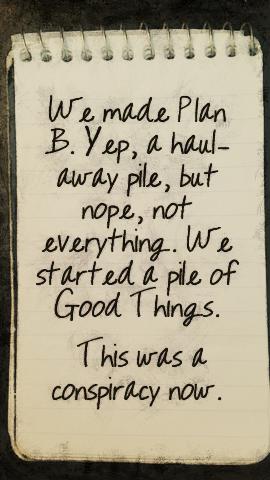 We made Plan
B. Yep, a haul-
away pile, but
nope, not
everything. We
started a pile of
Good Things.
This was a
conspiracy now.